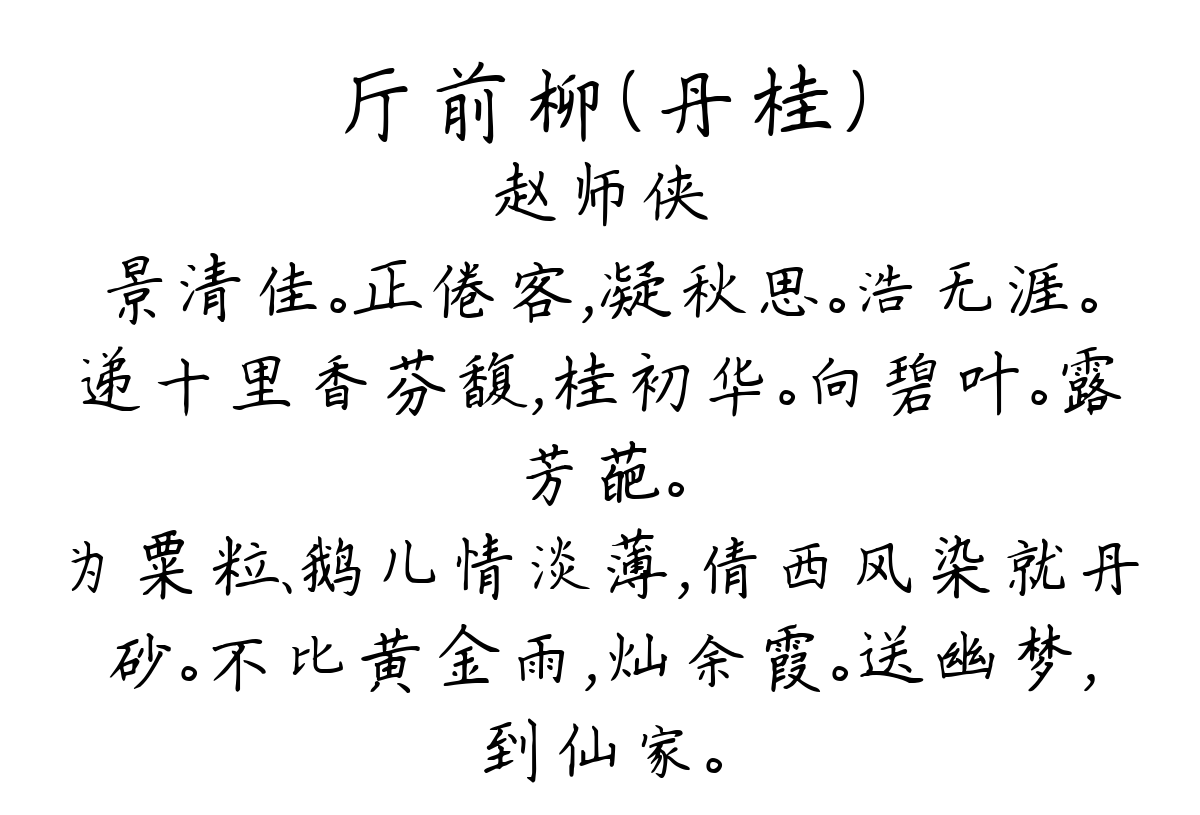 厅前柳(丹桂)
赵师侠
景清佳。正倦客,凝秋思。浩无涯。
递十里香芬馥,桂初华。向碧叶。露
芳葩。
为粟粒、鹅儿情淡薄,倩西风染就丹
砂。不比黄金雨,灿余霞。送幽梦,
到仙家。